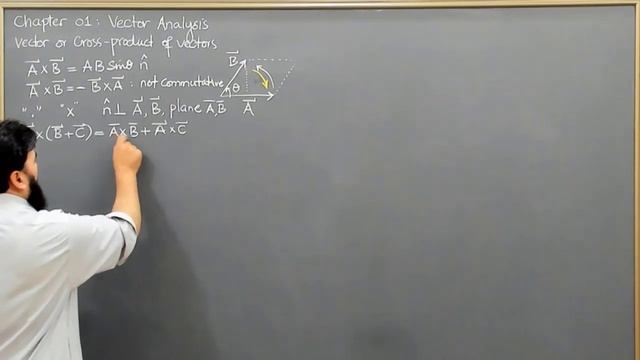 Chapter 01: Vector Analysis
Vector or Cross-product of vectors
A⃗ × B⃗ = AB sinθ n̂
A⃗ × B⃗ = - B⃗ × A⃗ : not commutative
"." "×" n̂ ⊥ A⃗, B⃗, plane A⃗,B⃗
× (B⃗ + C⃗) = A⃗ × B⃗ + A⃗ × C⃗
B⃗
θ
A⃗